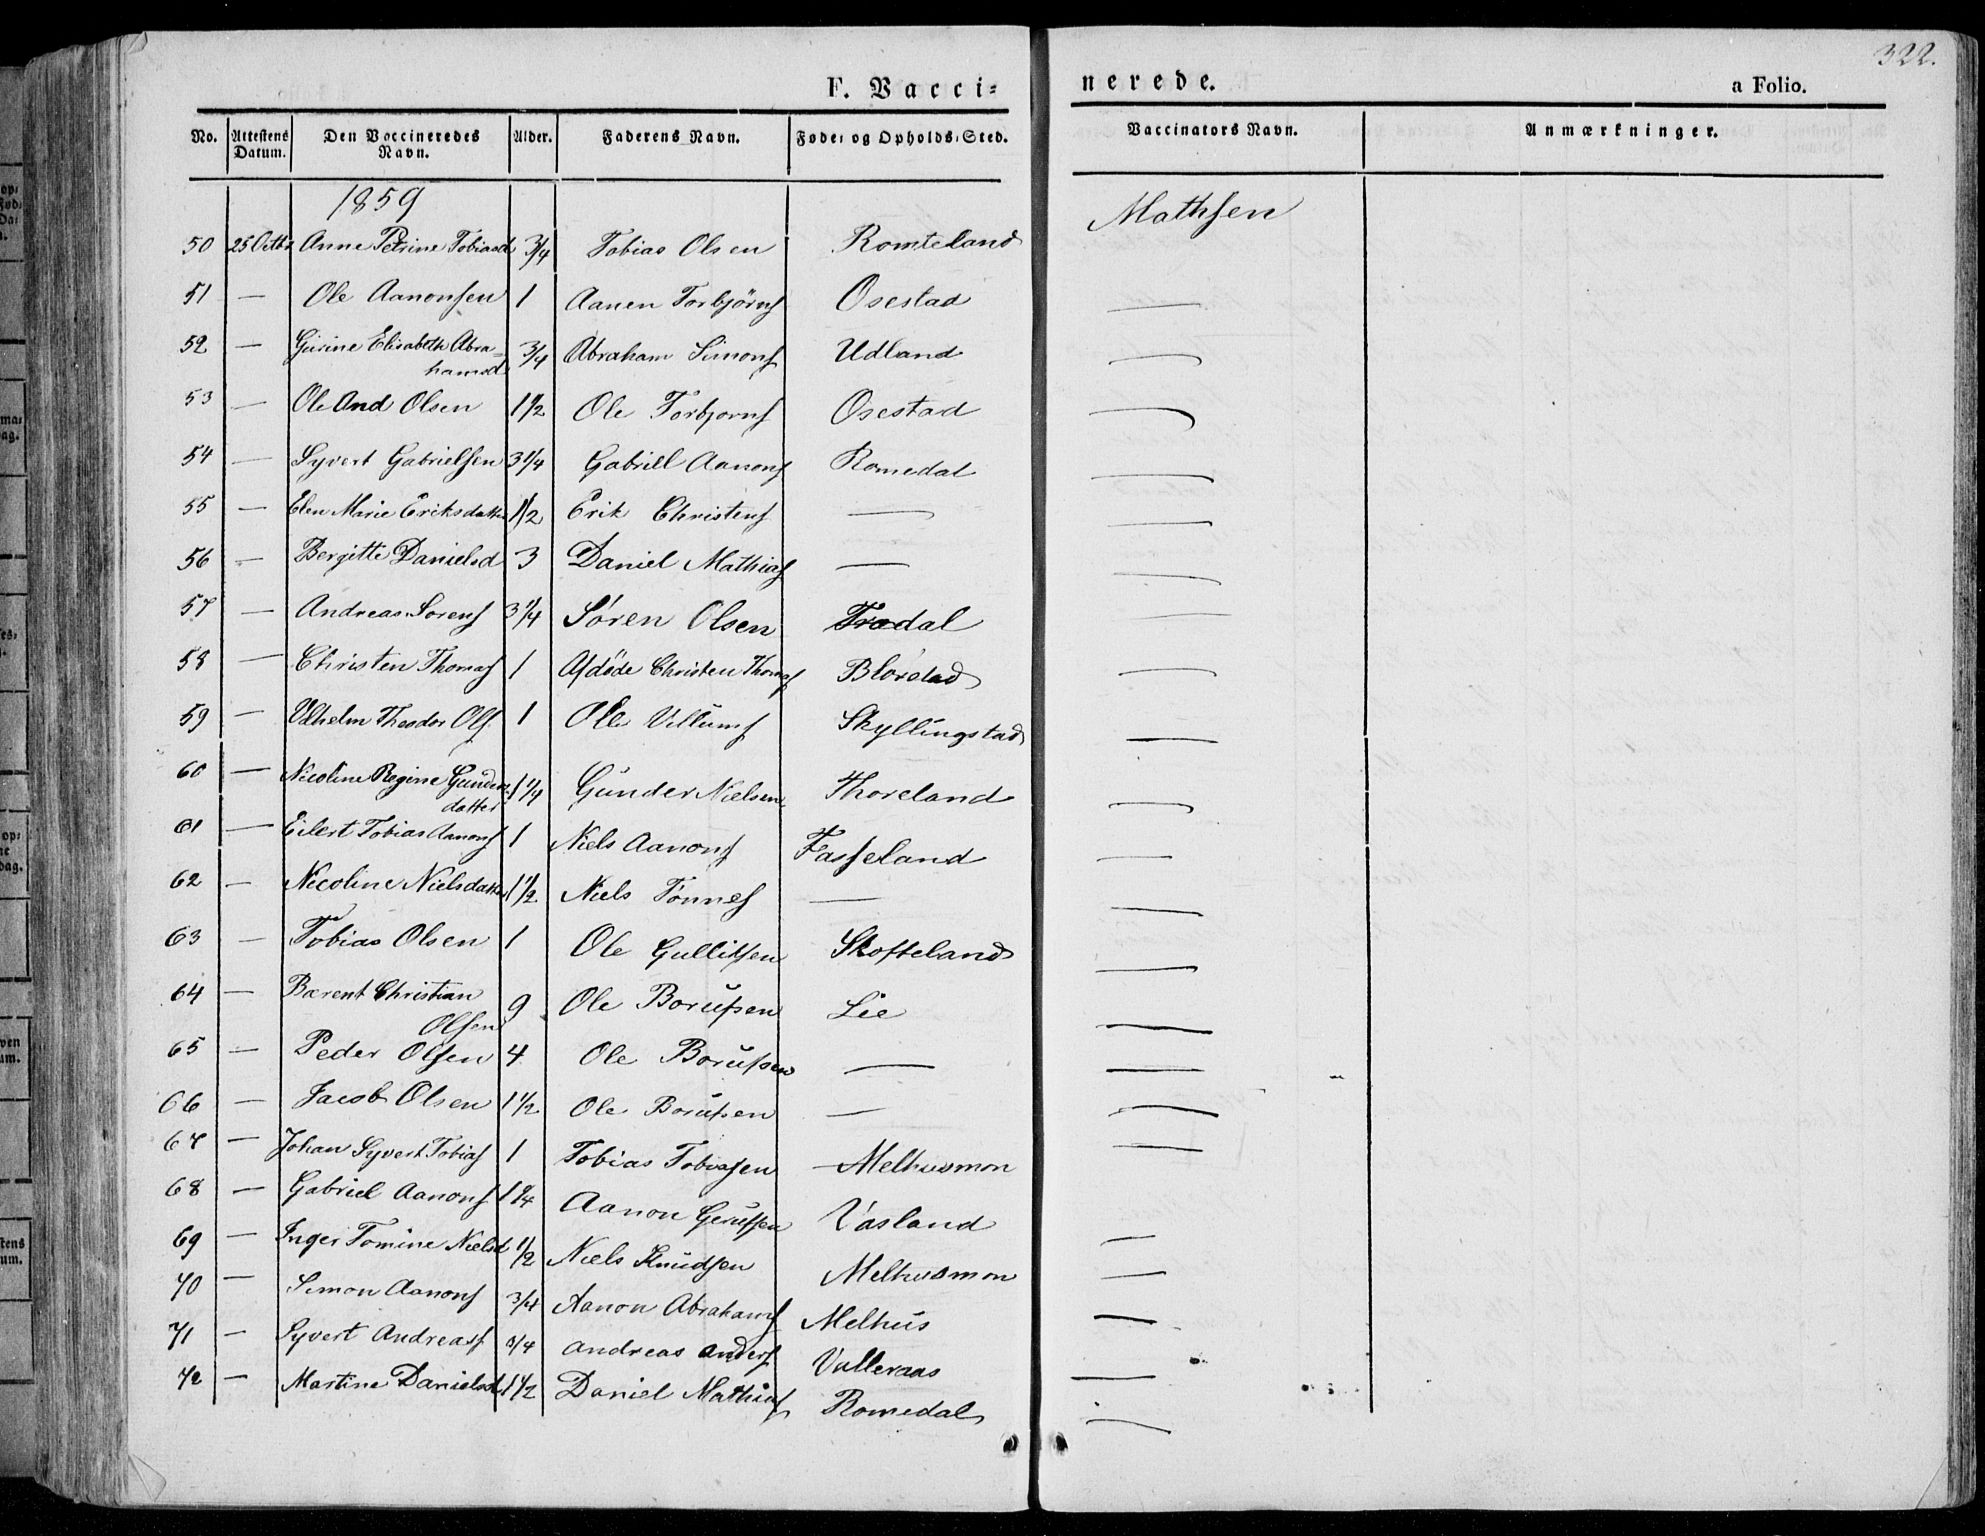 322.
F. Vaccinerede. a Folio.
No. Attestens Datum. Den Vaccineredes Navn. Alder. Faderens Navn. Føde- og Opholds-Sted. Vaccinators Navn. Anmærkninger.
1859
50 25 Octbr Anne Petrine Tobiasd 3/4 Tobias Olsen Romteland Mathsen
51 — Ole Aanonsen 1 Aanen Torbjørns Osestad —
52 — Gurine Elisabeth Abra-
hamsd 3/4 Abraham Simons Udland —
53 — Ole And Olsen 1 1/2 Ole Torbjorns Osestad —
54 — Syvert Gabrielsen 3 1/4 Gabriel Aanons Romedal —
55 — Elen Marie Eriksdatter 1 1/2 Erik Christens — —
56 — Bergitte Danielsd 3 Daniel Mathias — —
57 — Andreas Sorens 3 1/4 Søren Olsen Trædal —
58 — Christen Thomas 1 Afdøde Christen Thomas —
59 — Vilhelm Theodor Ols 1 Ole Villums Skyllingstad —
60 — Nicoline Regine Gunder
datter 1 1/4 Gunder Nielsen Thoreland —
61 — Eilert Tobias Aanons 1 Niels Aanons Fasseland —
62 — Nicoline Nielsdatter 1 1/2 Niels Tønnes — —
63 — Tobias Olsen 1 Ole Gullitsen Skofteland —
64 — Bærent Christian
Olsen 9 Ole Borufsen Lie —
65 — Peder Olsen 4 Ole Borufsen — —
66 — Jacob Olsen 1 1/2 Ole Borufsen — —
67 — Johan Syvert Tobias 1 Tobias Tobiasen Melhusmon —
68 — Gabriel Aanons 1 1/4 Aanon Vasland —
69 — Inger Tomine Nielsd 1/2 Niels Knudsen Melhusmon —
70 — Simon Aanons 3/4 Aanon Abrahams Melhus —
71 — Syvert Andreas 3/4 Andreas Anders Valleraas —
72 — Martine Danielsd 1 1/2 Daniel Mathias Romedal —